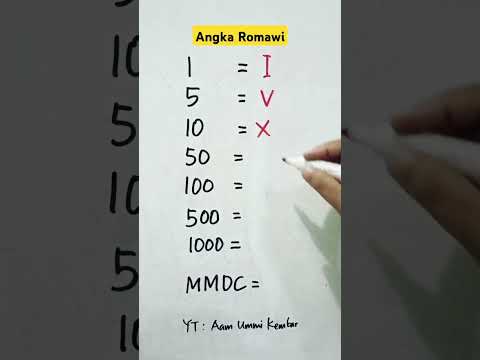 Angka Romawi
1 = I
5 = V
10 = X
50 =
100 =
500 =
1000 =
MMDC =
YT : Aam Ummi Kembar